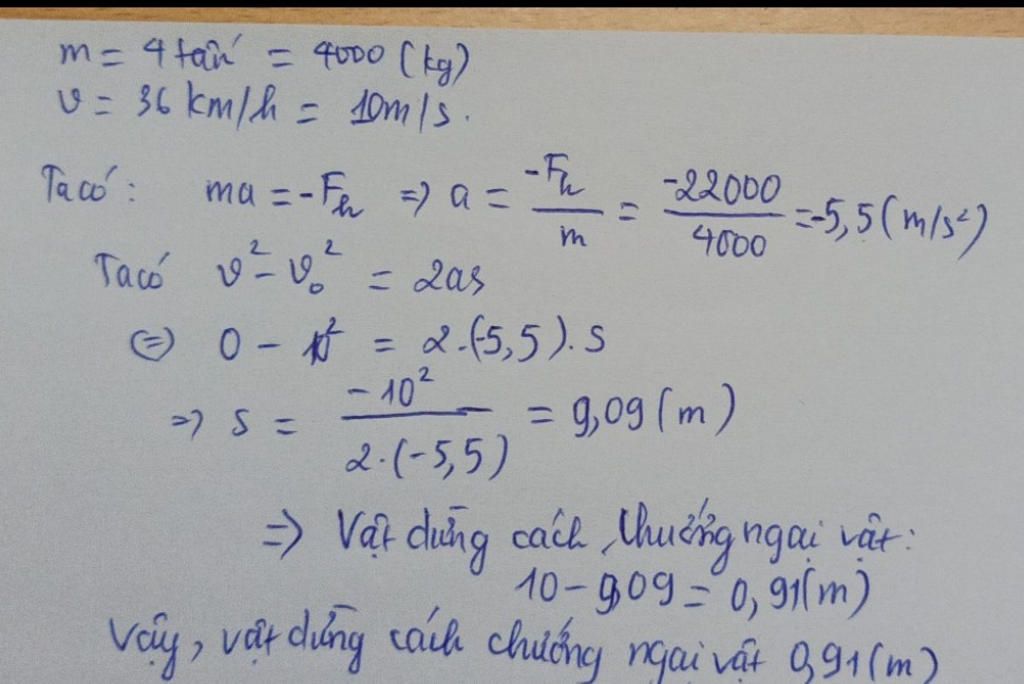 m = 4 tấn = 4000 (kg)
v = 36 km/h = 10m/s.
Ta có: ma = -Fh => a = -Fh/m = -22000/4000 = -5,5 (m/s²)
Ta có v² - v₀² = 2as
<=> 0 - 10² = 2.(-5,5).s
=> s = -10²/2.(-5,5) = 9,09 (m)
=> Vật dừng cách chướng ngại vật:
10 - 9,09 = 0,91(m)
Vậy, vật dừng cách chướng ngại vật 0,91(m)